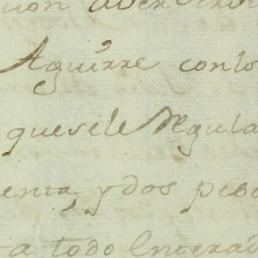 Aguirre conlo
quesele Regula
enta, y dos peso
a todo Enterad